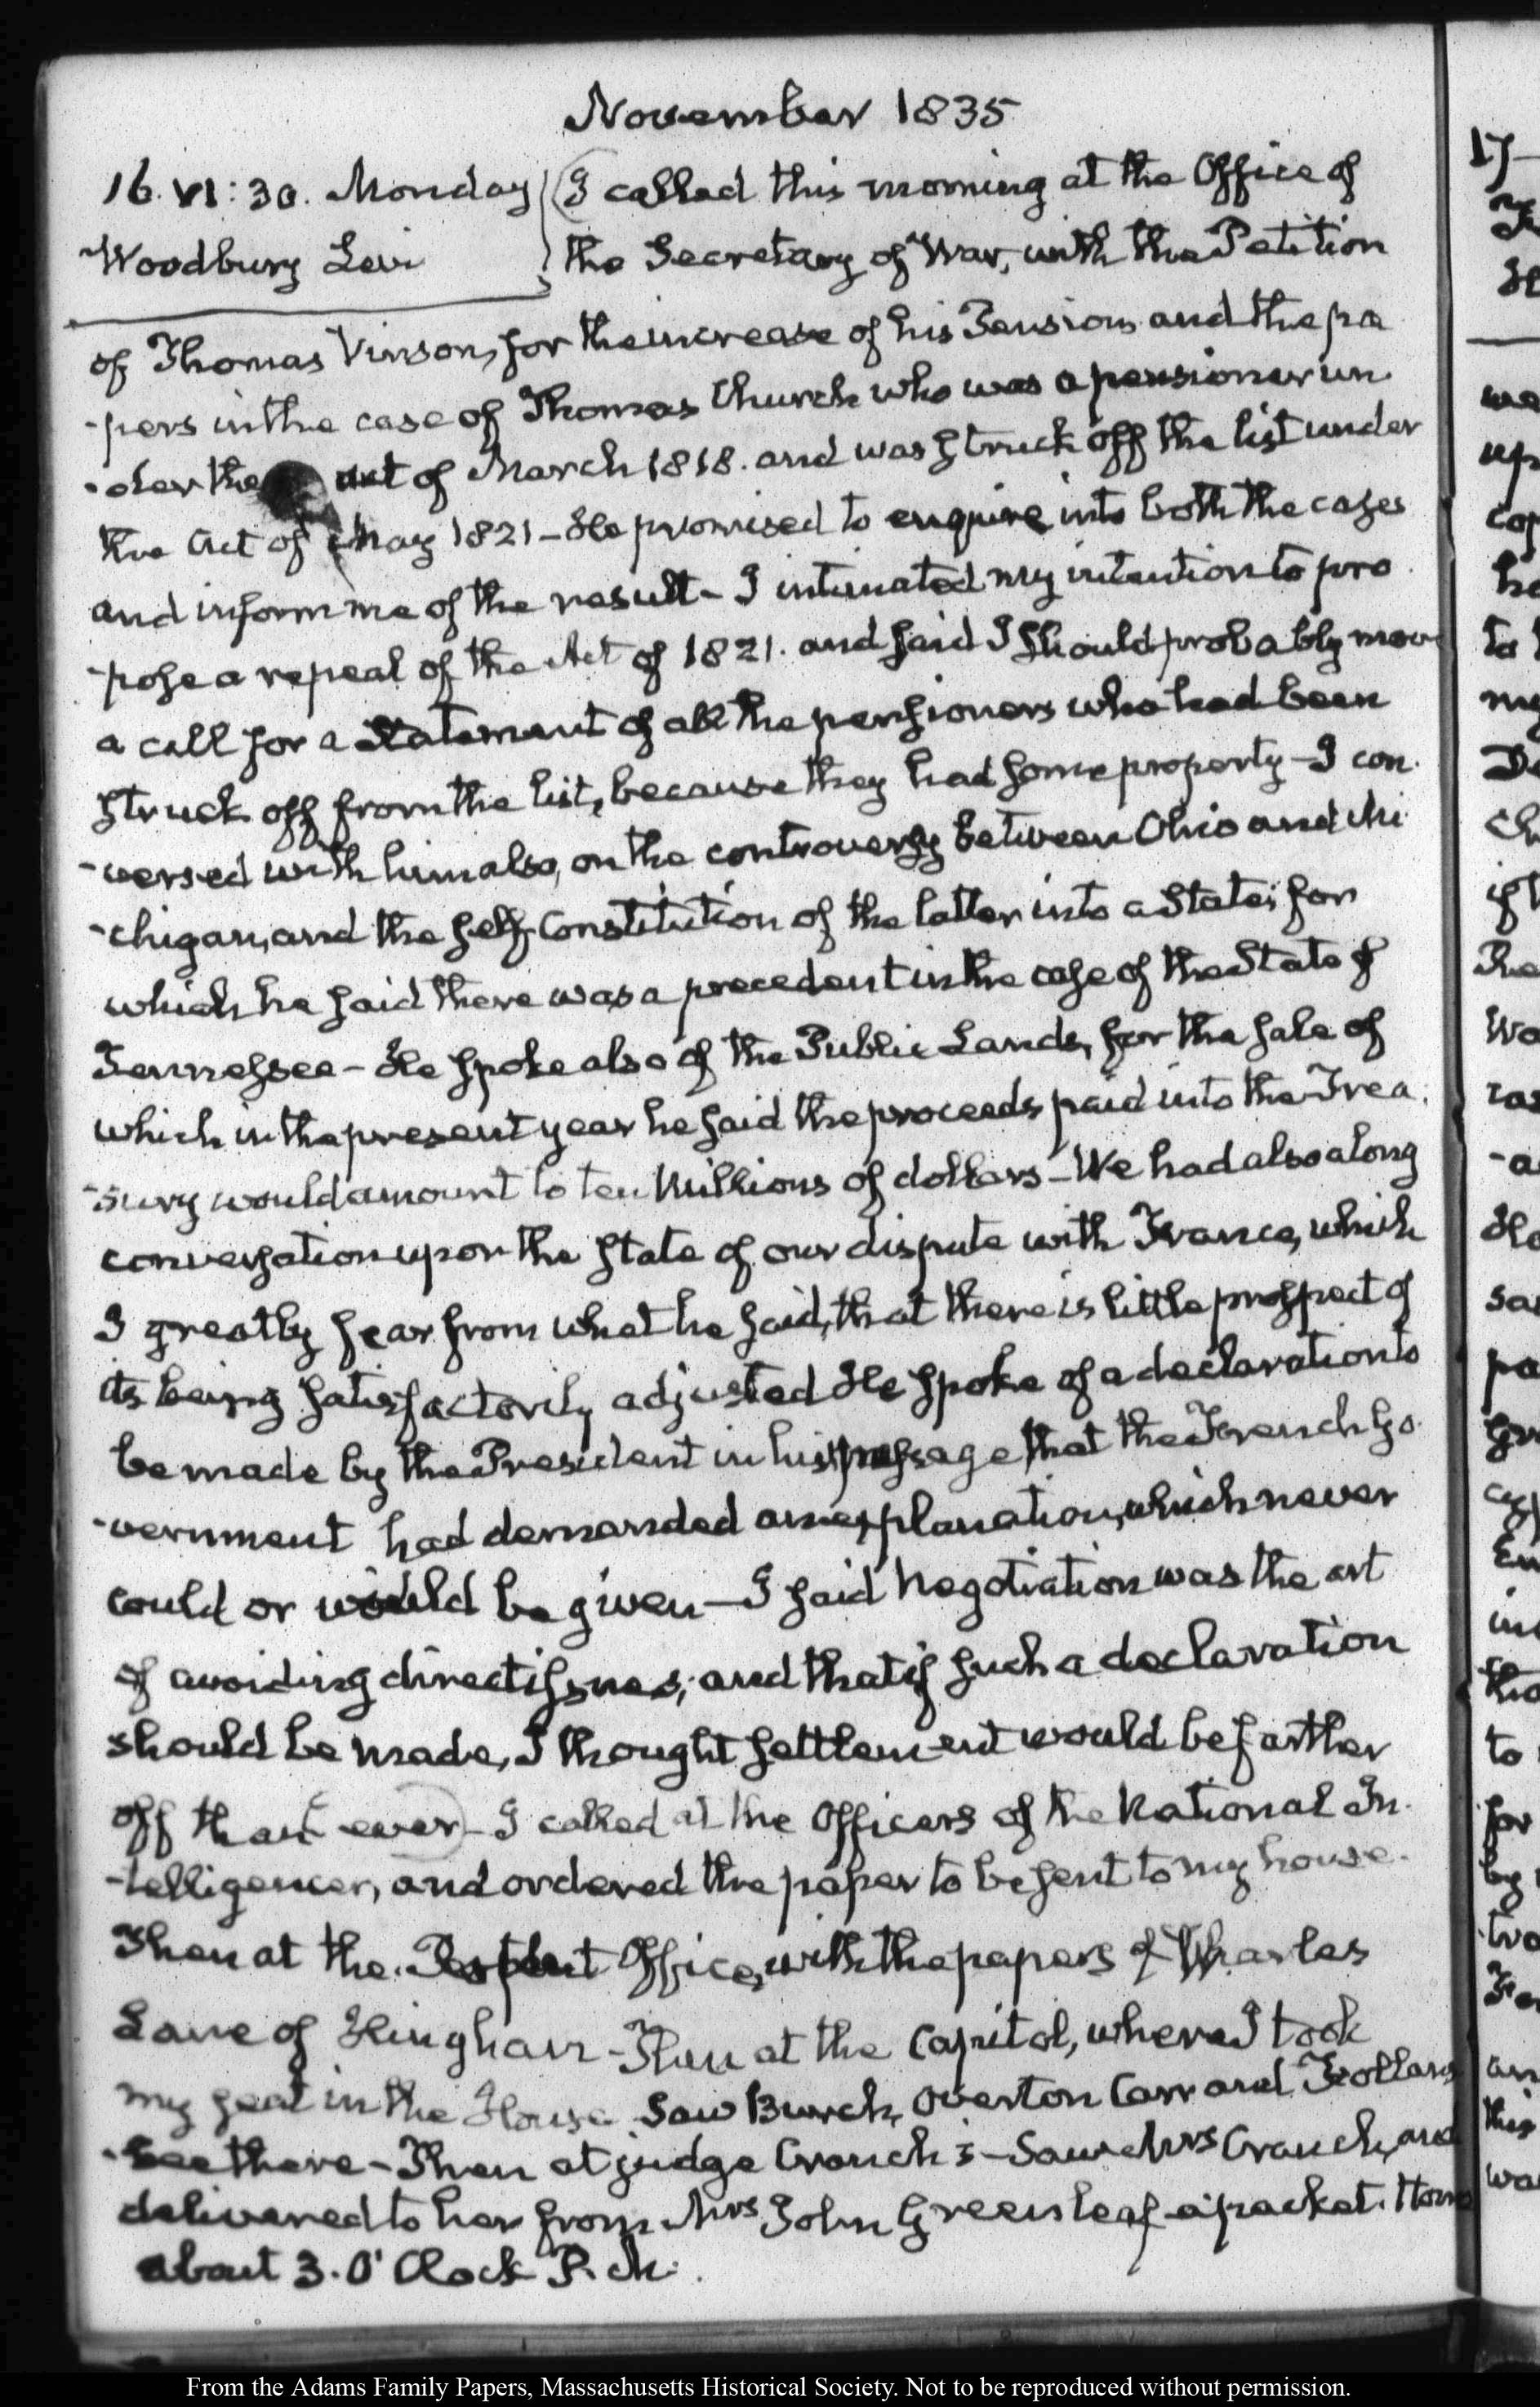 November 1835
16. VI:30. Monday
Woodbury Levi
I called this morning at the Office of
the Secretary of War, with the Petition
of Thomas Vinson, for the increase of his Pension and the pa
-pers in the case of Thomas Church who was a pensioner un
-der the act of March 1818. and was struck off the list under
the Act of May 1821 - He promised to enquire into both the cases
and inform me of the result - I intimated my intention to pro
-pose a repeal of the Act of 1821. and said I should probably move
a call for a Statement of all the pensioners who had been
struck off from the list, because they had some property - I con
-versed with him also, on the controversy between Ohio and Mi
-chigan, and the self-Constitution of the latter into a State; for
which he said there was a precedent in the case of the State of
Tennessee - He spoke also of the Public Lands, for the sale of
which in the present year he said the proceeds paid into the Trea
-sury would amount to ten Millions of dollars - We had also a long
conversation upon the state of our dispute with France, which
I greatly fear from what he said, that there is little prospect of
its being satisfactorily adjusted He spoke of a declaration to
be made by the President in his message that the French Go
-vernment had demanded an explanation, which never
could or would be given - I said Negotiation was the art
of avoiding direct issues; and that if such a declaration
should be made, I thought settlement would be farther
off than ever - I called at the Officers of the National In
-telligencer, and ordered the paper to be sent to my house.
Then at the Patent Office, with the papers of Charles
Lane of Hingham - Then at the Capitol, where I took
my seat in the House Saw Burch, Overton Carr and Follans
-bee there - Then at judge Cranch's - Saw Mrs Cranch, and
delivered to her from Mrs John Greenleaf a packet. Home
about 3. O'Clock P.M.
17-
From the Adams Family Papers, Massachusetts Historical Society. Not to be reproduced without permission.